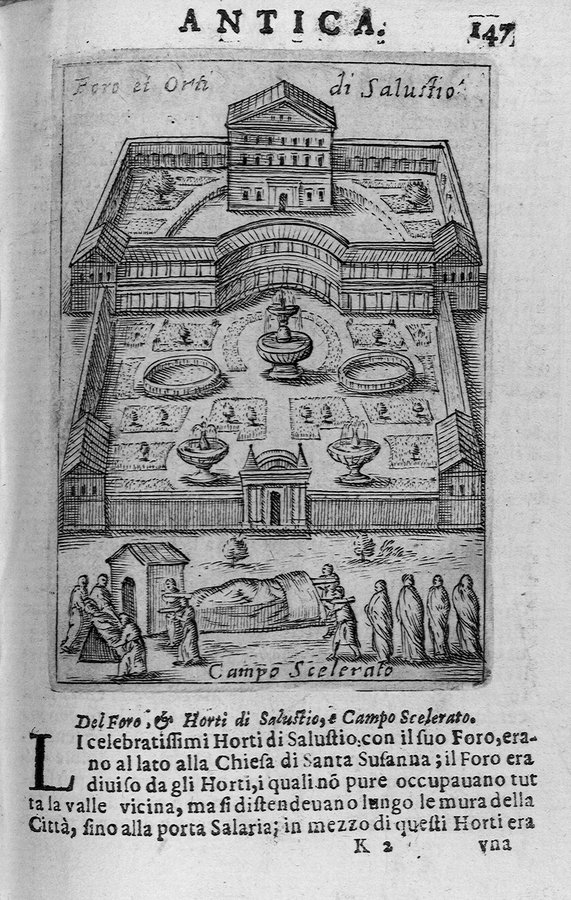 ANTICA. 147
Foro et Orti di Salustio.
Campo Scelerato
Del Foro, & Horti di Salustio, e Campo Scelerato.
LI celebratissimi Horti di Salustio, con il suo Foro, era-
no al lato alla Chiesa di Santa Susanna; il Foro era
diuiso da gli Horti, i quali nõ pure occupauano tut
ta la valle vicina, ma si distendeuano lungo le mura della
Città, sino alla porta Salaria; in mezzo di questi Horti era
K 2 vna